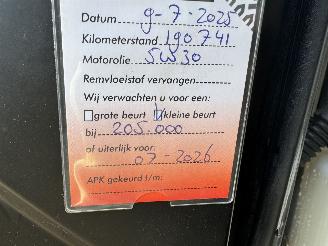 Datum 9-7-2025
Kilometerstand 190741
Motorolie 5W30
Remvloeistof vervangen
Wij verwachten u voor een:
grote beurt kleine beurt
bij 205.000
of uiterlijk voor:
07-2026
APK gekeurd t/m: